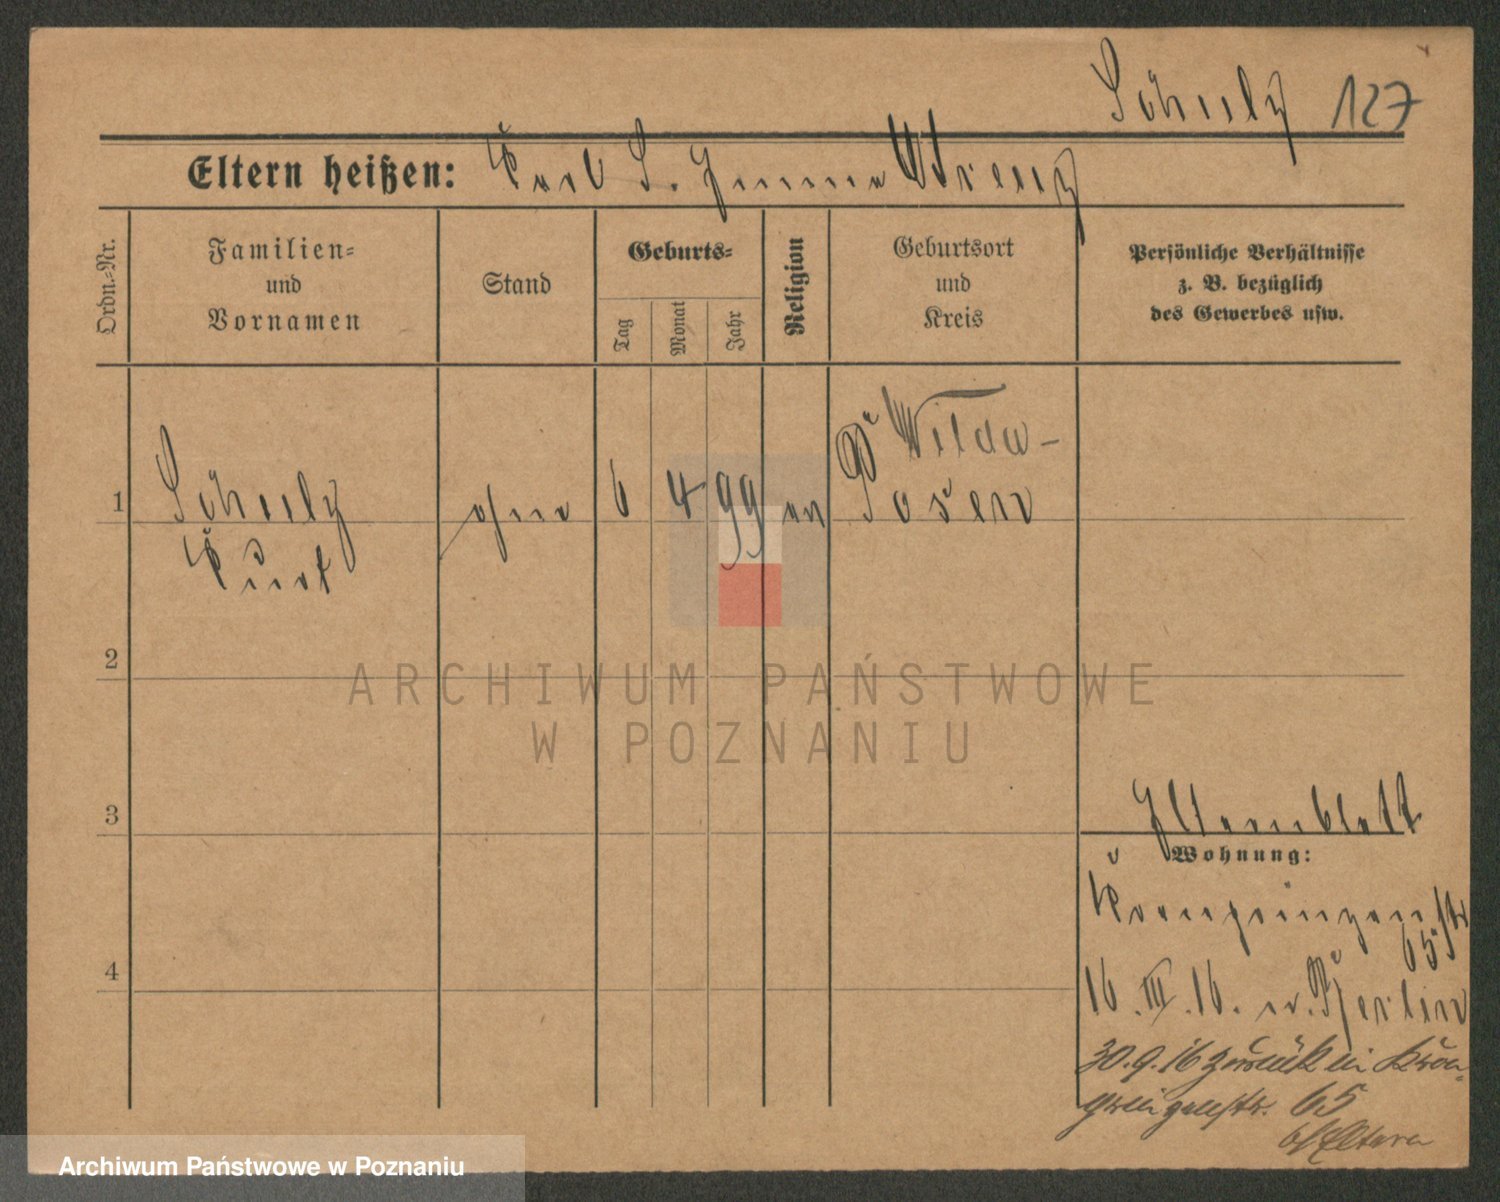 Schulz 127
Eltern heißen: Karl S. Emma Wrenz
Ordn.=Nr.
Familien=
und
Vornamen
Stand
Geburts=
Tag
Monat
Jahr
Religion
Geburtsort
und
Kreis
Persönliche Verhältnisse
z. B. bezüglich
des Gewerbes usw.
1 Schulz ohne 6 4 99 ev Wilda-
Posen
Kurt
2
3
4
Elternblatt
Wohnung:
Kronprinzenstr
65.
16.III.16. n. Berlin
30.9.16 zurück in Kron-
prinzenstr. 65
b/ Eltern
ARCHIWUM PAŃSTWOWE
W POZNANIU
Archiwum Państwowe w Poznaniu